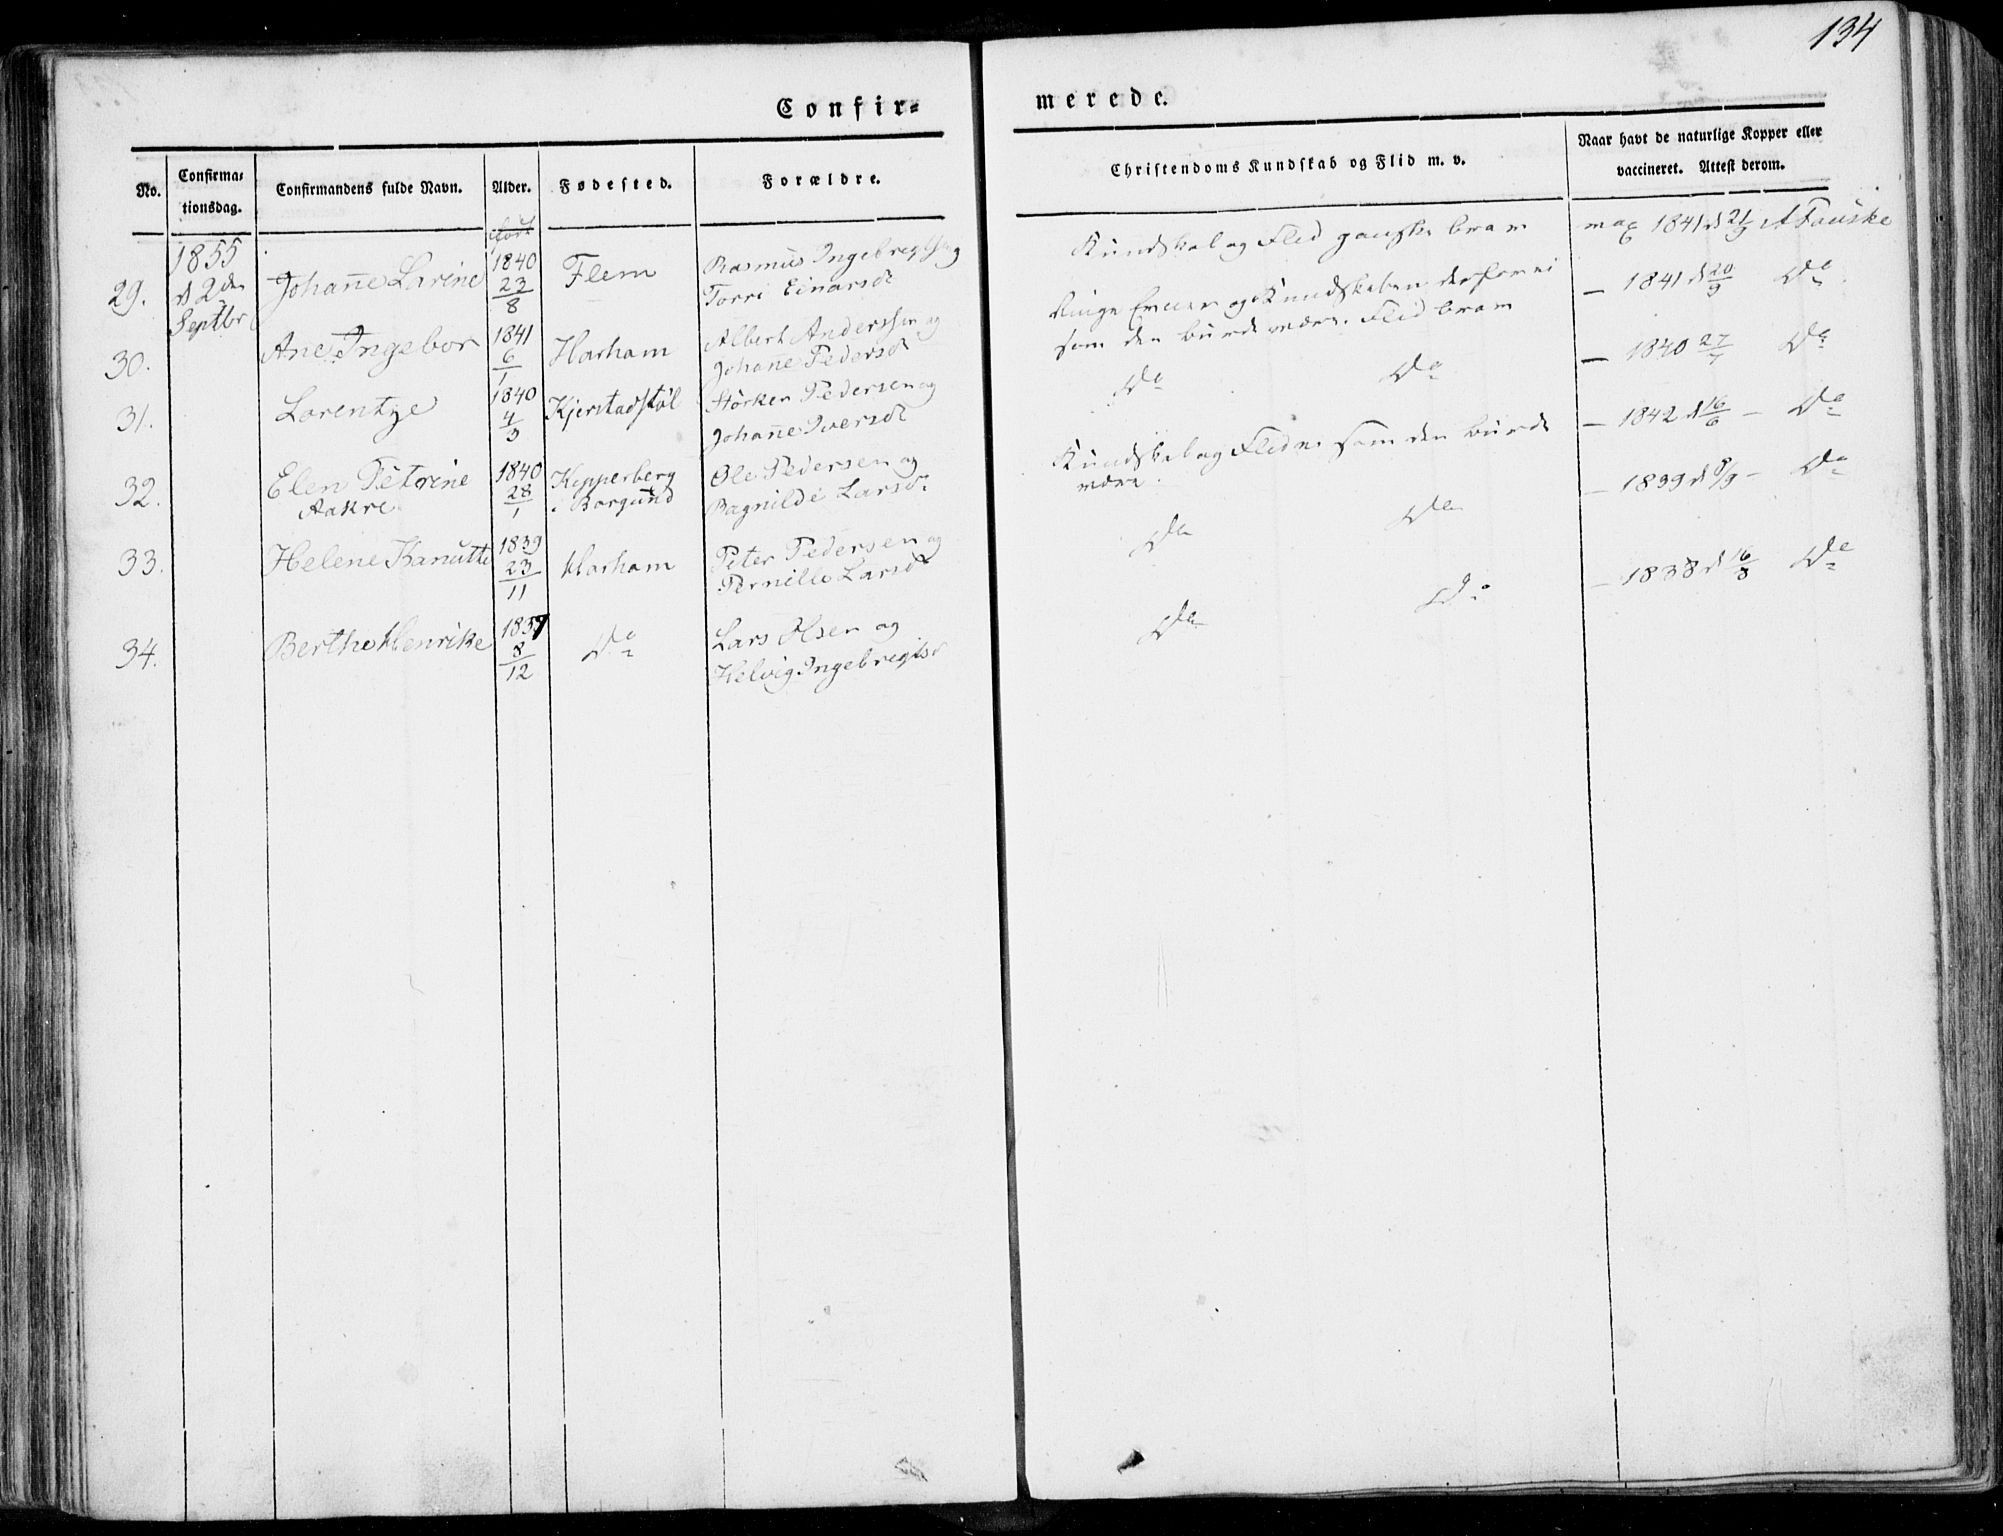 134
Confir=
merede.
No.
Confirma=
tionsdag.
Confirmandens fulde Navn.
Alder.
Fødested.
Forældre.
Christendoms Kundskab og Flid m. v.
Naar havt de naturlige Kopper eller
vaccineret. Attest derom.
født
1855
d 2den
Septbr
29. Johan̄e Larine 1840 23/8 Flem Rasmus Ingebregtsen og
Torri Einarsdr
Kundskab og Flid ganske bram
1841 d 21/9 A Fauske
30. Ane Ingebor 1841 6/1 Harham Albert Anderssen og
Johan̄e Pedersdr
Ringe Evner og Kundskaben derfor ei
som den burde være. Flid bram
— 1841 d 20/9 Do
31. Lorentze 1840 4/3 Kjerstadstøl Størker Pedersen og
Johan̄e Iversdr
Do Do
— 1840 27/7 Do
32. Elen Petrine 1840 28/1 Kopperberg Ole Pedersen og
Aakre i Borgund Ragnilde Larsdr
Kundskab og Flid ei som den burde
være.
— 1842 d 16/6 — Do
33. Helene Kanutte 1839 23/11 Harham Peter Pedersen og
Pernille Larsdr
Do Do
— 1839 d 8/9 — Do
34. Berthe Henrike 1837 8/12 Do Lars Olsen og
Helvig Ingebregtsdr
Do Do
— 1838 d 16/8 Do